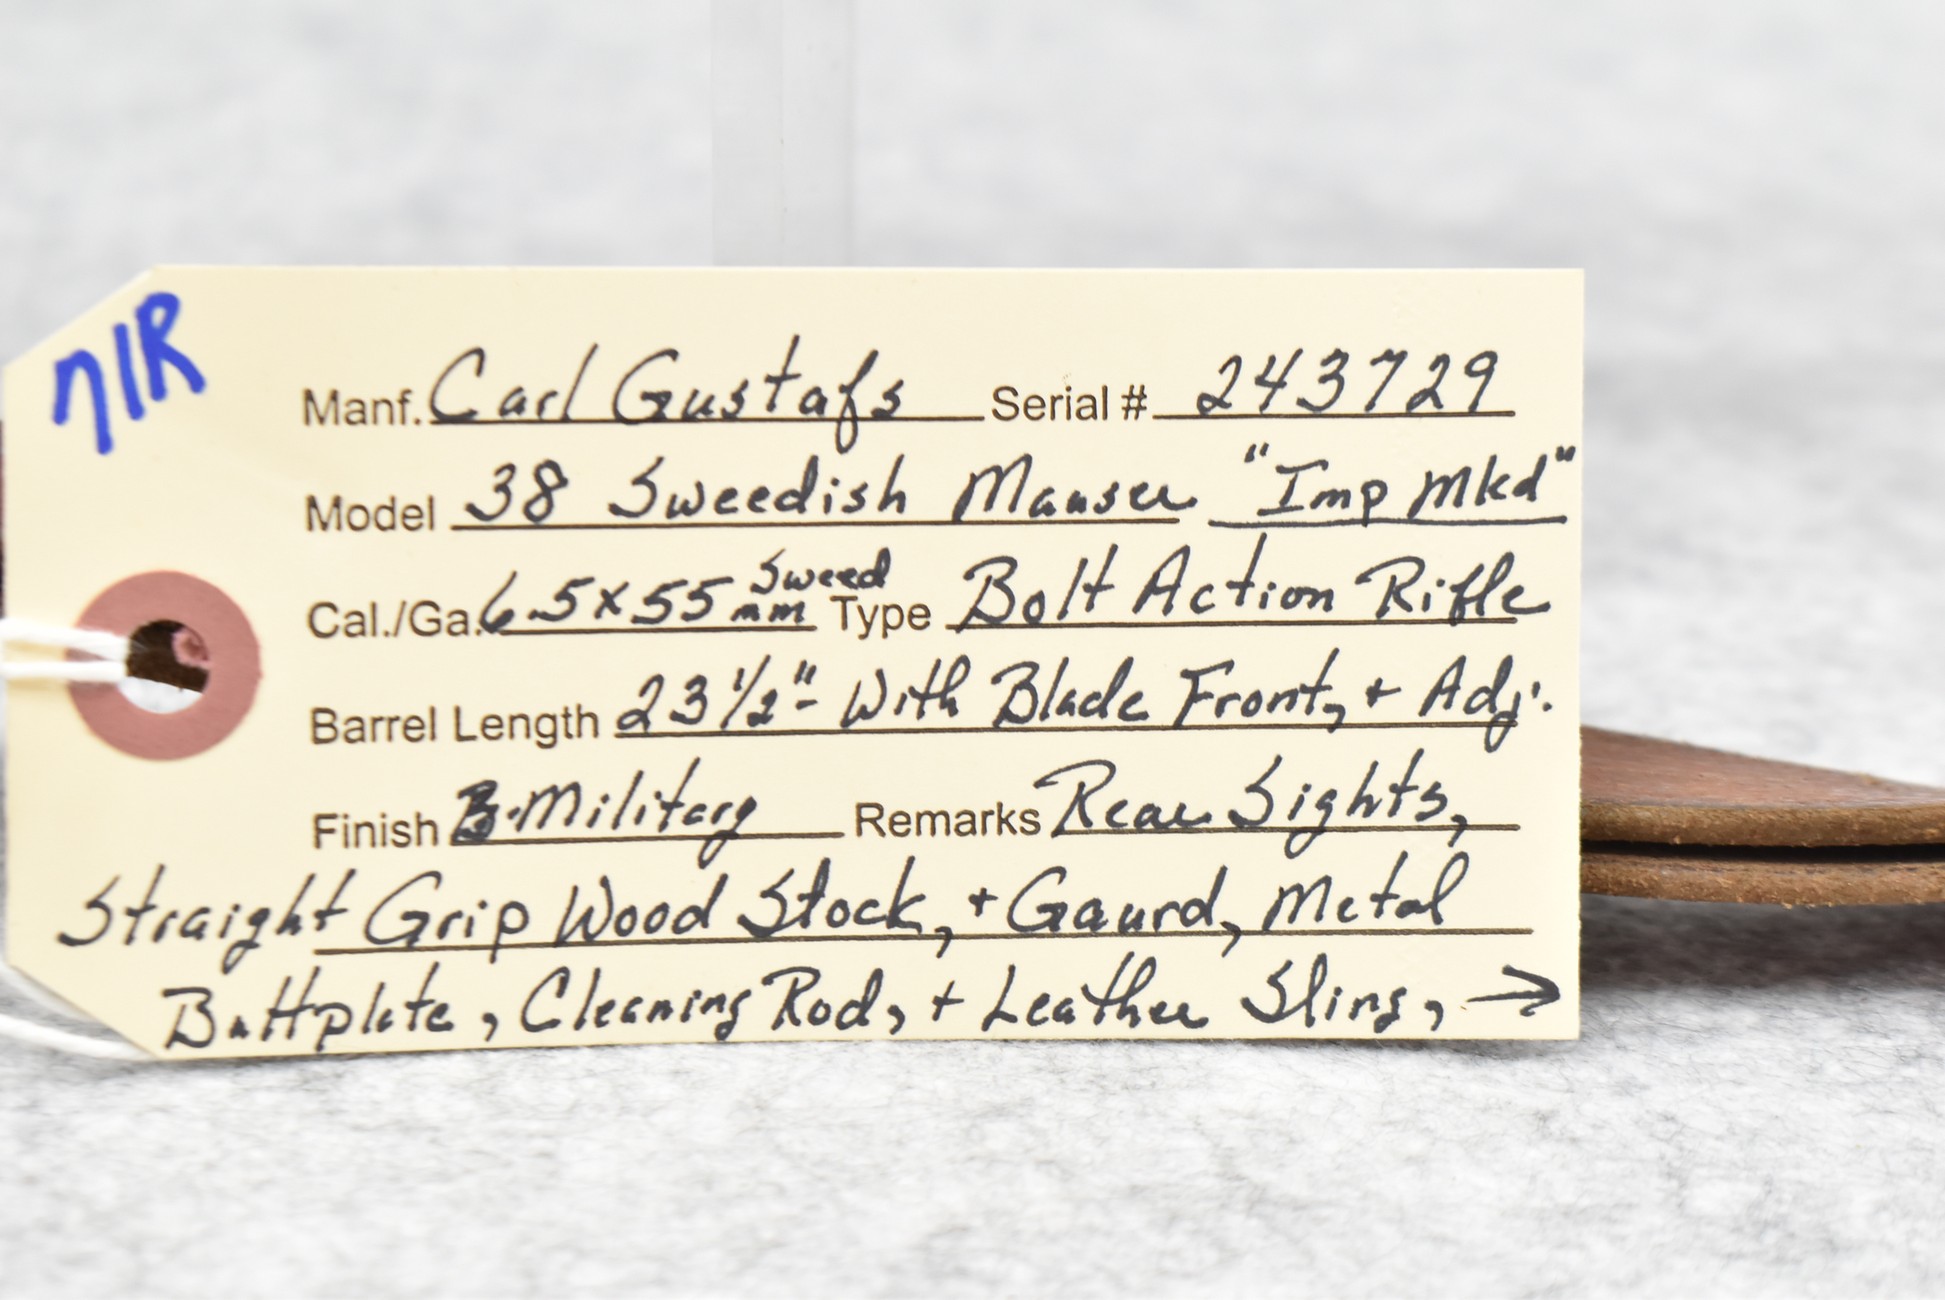 71R
Manf. Carl Gustafs Serial # 243729
Model 38 Sweedish Mauser "Imp Mkd"
Cal./Ga. 6.5x55 mm Sweed Type Bolt Action Rifle
Barrel Length 23 1/2"- With Blade Front, + Adj.
Finish B-Military Remarks Rear Sights,
Straight Grip Wood Stock, + Gaurd, Metal
Buttplate, Cleaning Rod, + Leather Sling, →